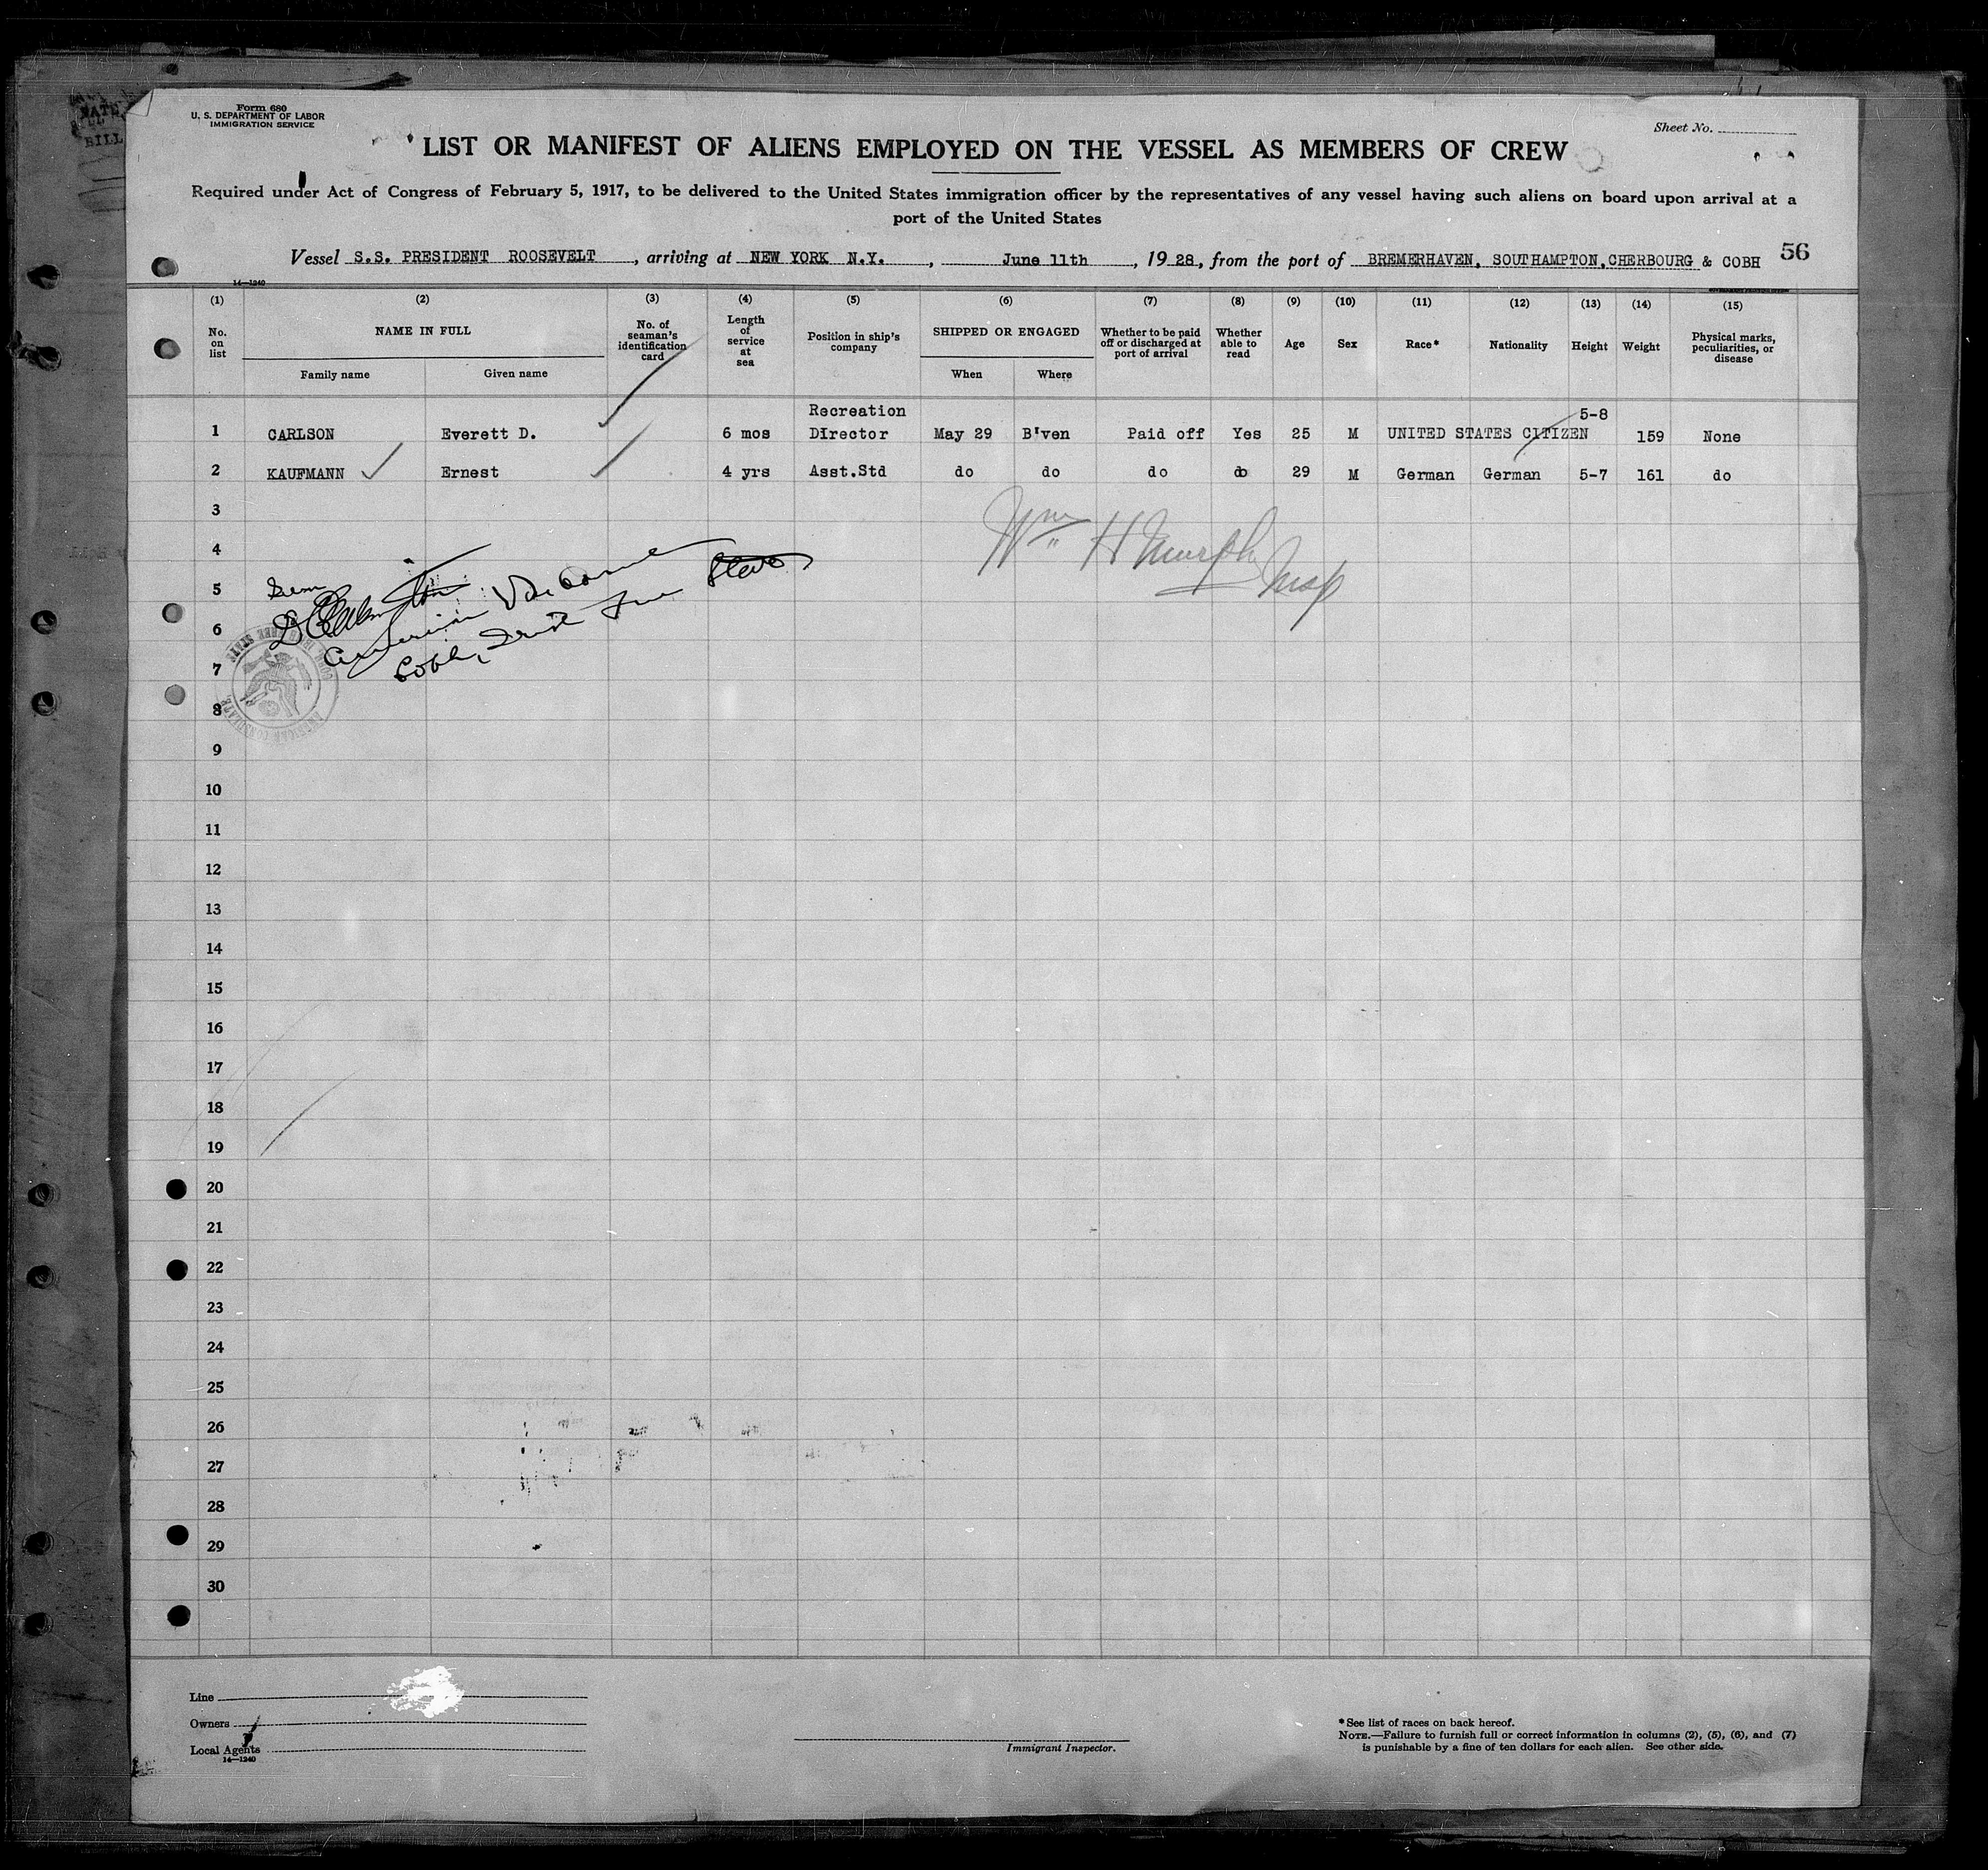 Form 680
U. S. DEPARTMENT OF LABOR
IMMIGRATION SERVICE
Sheet No.
LIST OR MANIFEST OF ALIENS EMPLOYED ON THE VESSEL AS MEMBERS OF CREW
Required under Act of Congress of February 5, 1917, to be delivered to the United States immigration officer by the representatives of any vessel having such aliens on board upon arrival at a
port of the United States
Vessel S.S. PRESIDENT ROOSEVELT, arriving at NEW YORK N.Y., June 11th, 1928, from the port of BREMERHAVEN, SOUTHAMPTON, CHERBOURG & COBH 56
14—1240
(1) (2) (3) (4) (5) (6) (7) (8) (9) (10) (11) (12) (13) (14) (15)
No. on list NAME IN FULL No. of seaman's identification card Length of service at sea Position in ship's company SHIPPED OR ENGAGED Whether to be paid off or discharged at port of arrival Whether able to read Age Sex Race* Nationality Height Weight Physical marks, peculiarities, or disease
Family name Given name When Where
1 CARLSON Everett D. 6 mos Recreation Director May 29 B'ven Paid off Yes 25 M UNITED STATES CITIZEN 5-8 159 None
2 KAUFMANN Ernest 4 yrs Asst.Std do do do do 29 M German German 5-7 161 do
3
4
Wm H Murphy Insp
5
6
American Vice Consul
7
Cobh, Irish Free State
8
9
10
11
12
13
14
15
16
17
18
19
20
21
22
23
24
25
26
27
28
29
30
Line
Owners
Local Agents
14—1240
Immigrant Inspector.
*See list of races on back hereof.
NOTE.—Failure to furnish full or correct information in columns (2), (5), (6), and (7)
is punishable by a fine of ten dollars for each alien. See other side.